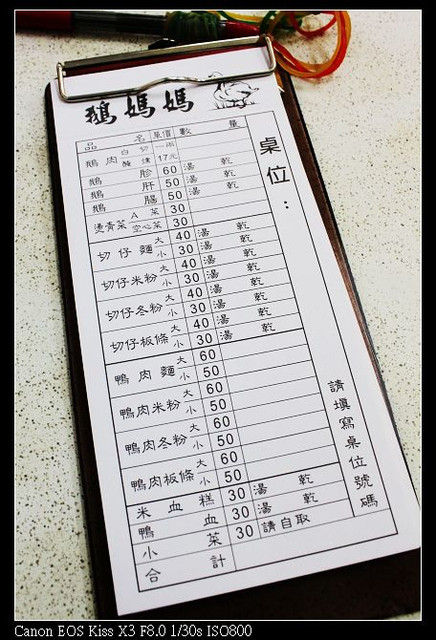 鵝媽媽
品 名 單價 數 量
鵝肉 白切 一兩
醃燻 17元
鵝 胗 60 湯 乾
鵝 肝 50 湯 乾
鵝 腸 50 湯 乾
燙青菜 A菜 30
空心菜 30
切仔麵 大 40 湯 乾
小 30 湯 乾
切仔米粉 大 40 湯 乾
小 30 湯 乾
切仔冬粉 大 40 湯 乾
小 30 湯 乾
切仔板條 大 40 湯 乾
小 30 湯 乾
鴨肉麵 大 60
小 50
鴨肉米粉 大 60
小 50
鴨肉冬粉 大 60
小 50
鴨肉板條 大 60
小 50
米血糕 30 湯 乾
鴨血 30 湯 乾
小菜 30 請自取
合計
桌位：
請填寫桌位號碼
Canon EOS Kiss X3 F8.0 1/30s ISO800